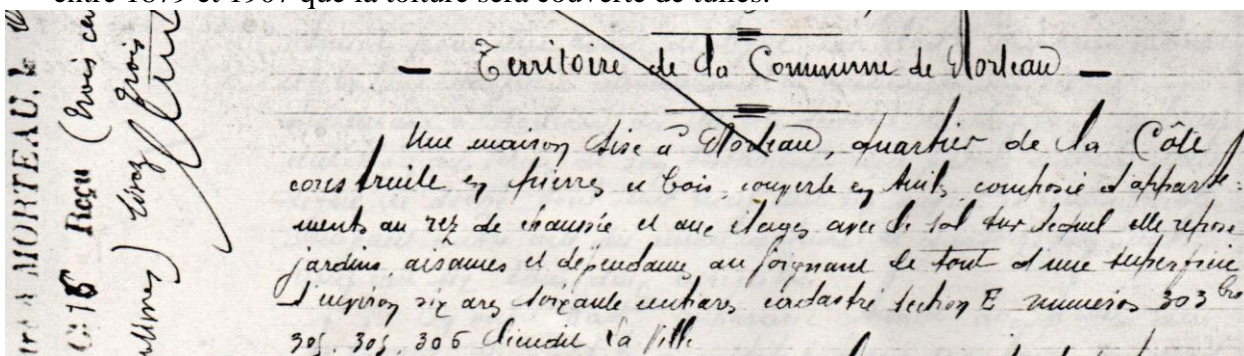 entre 1879 et 1907 que la toiture sera couverte de tuiles.
Territoire de la Commune de Morteau
Une maison sise à Morteau, quartier de la Côte
construite en pierres et bois, couverte en tuiles composée d'apparte-
ments au rez de chaussée et aux étages avec le sol sur lequel elle repose
jardins, aisances et dépendances, au joignant le tout d'une superficie
d'environ six ares soixante centiares cadastré section E numéros 303 bis
305, 306 lieudit La Ville
MORTEAU, le
Reçu (trois
trois